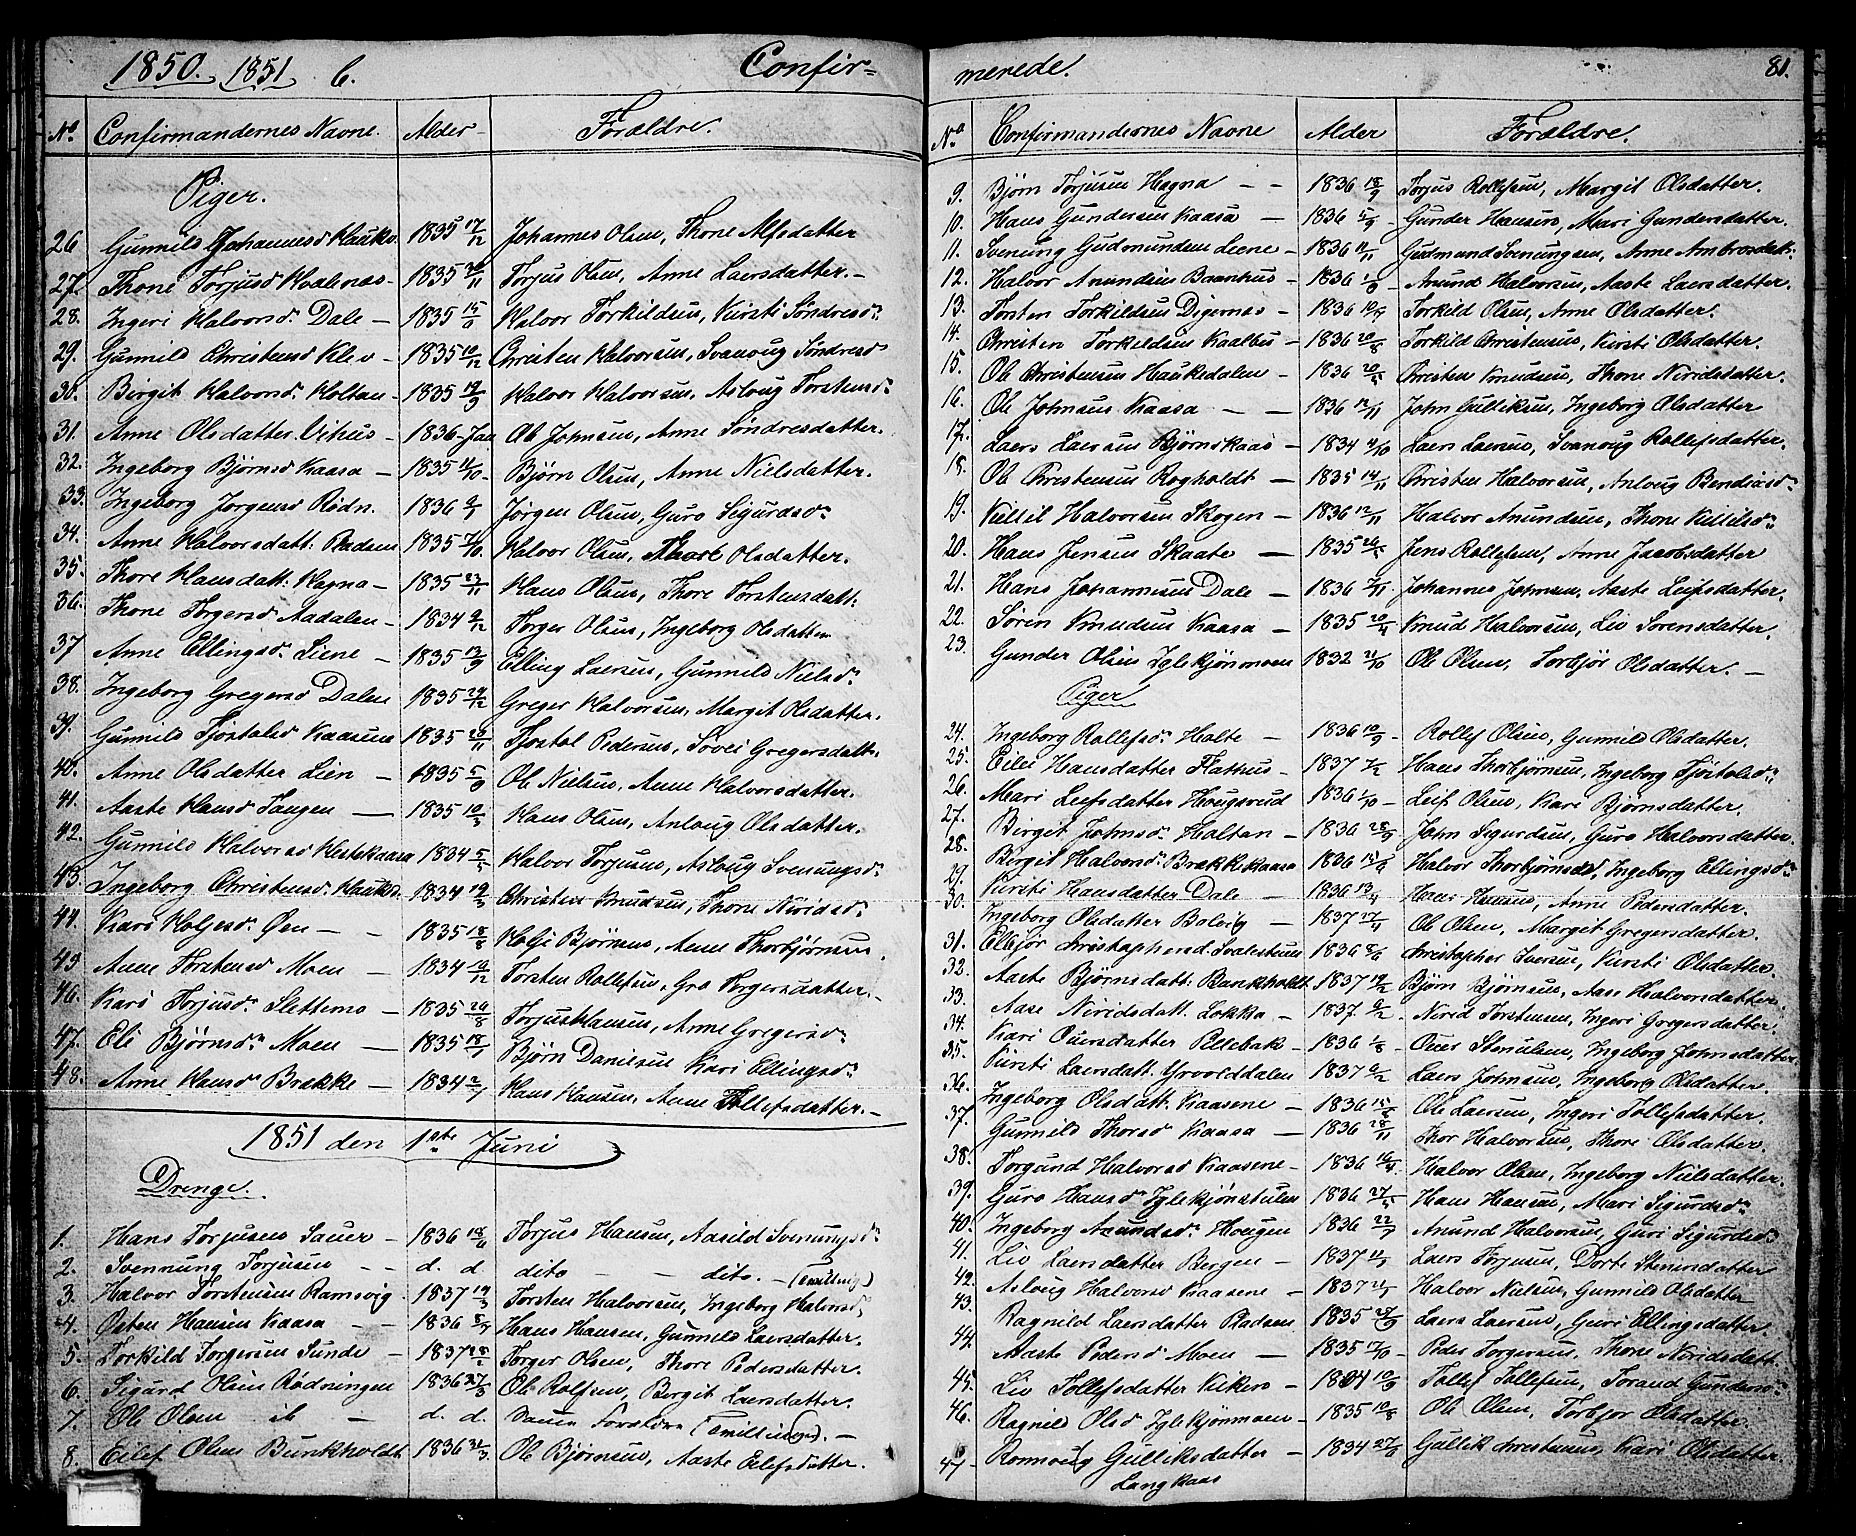 1850. 1851 C. Confir=
No. Confirmandernes Navne. Alder Forældre.
Piger.
26 Gunnild Johannesd 1835 17/12 Johannes Olsen, Thone Alfsdatter
27. Thone Torjusd 1835 Torjus Olsen, Anne Laersdatter. -
28. Ingeri Halvorsd. Dale - 1835 Halvor Torkildsen, Kirsti Söndresd.
29. Gunnild Christensd Klev - 1835 10/12 Christen Halvorsen, Svanoug Söndresd
30. Birgit Halvorsd. Holtan - 1835 19/9 Halvor Halvorsen, Asloug Torstensd.
31. Anne Olsdatter - 1836 - Jan Ole Johnsen, Anne Söndresdatter.
32. Ingeborg Bjørnsd Kaasa - 1835 11/10 - Bjørn Olsen, Anne Nielsdatter.
33. Ingeborg Jørgensd Rödn. 1836 Jørgen Olsen, Guro Sigurdsd.
34. Anne Halvorsdatt. 1835 7/10. Halvor Olsen, Thore Olsdatter.
35. Thore Hansdatt. Hegna - 1835 23/11 Hans Olsen, Thore Torstensdatt.
36. Thone Torgersd Aadalen - 1834 Torger Olsen, Ingeborg Olsdatter
37 Anne Ellingsd. Liene - 1835 13/9 Elling Laersen, Gunnild Nielsd.
38. Ingeborg Gregersd Dalen 1835 29/12 Greger Halvorsen, Margit Olsdatter.
39. Gunnild Tjostolsd Kaasene 1835 20/11 Tjostol Pedersen, Sövei Gregersdatt.
40. Anne Olsdatter Lien - 1835 5/9 Ole Nielsen, Anne Halvorsdatter.
41. Aaste Hansd Tangen - 1835 10/3 Hans Olsen, Anloug Olsdatter.
42. Gunnild Halvorsd Vestekaasa 1834 5/5 Halvor Torjusen, Asloug Svenungsd.
43. Ingeborg Christensd. 1834 19/3 Christen Knudsen, Thone Niridsd.
44. Kari Holjesd. Øen - - 1835 18/8 Holje Bjørnsen, Anne Thorbjørnsen.
45. Anne Torstensd Moen - 1834 10/12 Torsten Rollefsen, Gro Torgersdatter. -
46. Kari Torjusd. Slettemo - 1835 24/8 Torjus Hansen, Anne Gregersd.
47. Eli Bjørnsd. Moen - 1835 18/1 Bjørn Danielsen Kari Ellingsd.
48. Anne Hansd Brække - 1834 2/7 Hans Hansen, Anne Tollefsdatter. -
1851 den 1ste Juni
Drenge.
1. Hans Torjusen Sauer - 1836 18/6 Torjus Hansen, Aasild Svenungsd.
2. Svennung Torjusen - - d. d dito - - dito. - (Tvilling)
3. Halvor Torstensen Ramsvig 1837 19/3 Torsten Halvorsen, Ingeborg Halvorsd.
4. Østen Hansen Kaasa - - 1836 Hans Hansen, Gunnild Laersdatter.
5. Torkild Torgersen Sunde - 1837 Torger Olsen, Thore Pedersdatter.
6. Sigurd Olsen Rødningen 1836 27/8 Ole Rolfsen, Bergit Laersdatter.
7. Ole Olsen ib - d. d. Samme Forældre (Tvillinger). -
8. Eilef Olsen Bunkholdt 1836 31/3. Ole Bjørnsen, Aaste Eilefsdatter.
merede. 81.
No. Confirmandernes Navne Alder Forældre.
9. Bjørn Torjusen Hegna - - 1836 18/9 Torjus Rollefsen, Margit Olsdatter.
10. Hans Gundersen Kaasa - 1836 5/9 - Gunder Hansen, Mari Gundersdatter.
11. Svenung Gudmundsen Liene - 1836 11/11 Gudmund Svenungsen, Anne Ambrosdatt.
12. Halvor Anundsen Baanhus - 1836 Anund Halvorsen, Aaste Laersdatter.
13. Torsten Torkildsen Digernes - 1836 Torkild Olsen, Anne Olsdatter.
14. Christen Torkildsen Kaalbu - 1836 20/8 Torkild Christensen, Kirsti Olsdatter.
15. Ole Christensen Haukedalen - 1836 20/5 Christen Knudsen, Thone Niridsdatter.
16. Ole Johnsen Kaasa - - 1836 12/11 John Gulliksen, Ingeborg Olsdatter
17. Laers Laersen Bjørnskaas - 1834 4/10 Laers Laersen, Svanoug Rollefsdatter.
18. Ole Christensen Rogholdt - 1835 14/11 Christen Halvorsen, Anloug Bendixsd.
19. Kittil Halvorsen Skogen - 1836 12/11 Halvor Anundsen, Thone Kittilsd.
20. Hans Jensen Skaate - 1835 26/5 Jens Rollefsen, Anne Jacobsdatter
21. Hans Johannesen Dale - 1836 7/11. Johannes Johnsen, Aaste Leifsdatter.
22. Søren Knudsen Kaasa - 1835 20/4 Knud Halvorsen, Liv Sørensdatter.
23. Gunder Olsen Iglekjønmoen 1832 21/10 Ole Olsen, Torbjør Olsdatter. -
Piger
24. Ingeborg Rollefsd. Holte - 1836 10/9 - Rollef Olsen, Gunnild Olsdatter.
25. Eilei Hansdatter Flathus - 1837 7/2 Hans Thorbjørnsen, Ingeborg Tjöstolsd.
26. Mari Leifsdatter Hougerud 1836 1/10 - Leif Olsen, Kari Bjørnsdatter.
27. Birgit Johnsd. Holtan - 1836 28/9 John Sigurdsen, Guro Halvorsdatter.
28. Birgit Halvorsd. Brækkekaasa 1836 Halvor Thorbjørnsen, Ingeborg Ellingsd.
29. Kirsti Hansdatter Dale - 1836 13/4 Hans Hansen, Anne Pedersdatter.
30. Ingeborg Olsdatter Bolvig - 1837 Ole Olsen, Margit Gregersdatter.
31. Elbjør Christophersd. 1836 8/6 Christopher Iversen, Kirsti Olsdatter.
32. Aaste Bjørnsdatt. Bunkholdt 1837 19/2 Bjørn Bjørnsen, Aase Halvorsdatter.
33. Aase Niridsdatt. Lokka - 1837. 6/2 - Nirid Torstensen, Ingeri Gregersdatter.
34. Kari Oversdatter Pellebak - 1836 1/8 Over Stenulsen, Ingeborg Johnsdatter.
35. Kirsti Laersdatt. Grovolddalen 1837 6/2 Laers Johnsen, Ingeborg Olsdatter.
36. Ingeborg Olsdatt. Kaasene - 1836 Ole Laersen, Ingeri Tollefsdatter.
37. Gunnild Thorsd Kaasa - 1836 28/11 Thor Halvorsen, Thore Olsdatter.
38. Torgund Halvorsd Kaasene - 1836 Halvor Olsen, Ingeborg Nielsdatter.
39. Guro Hansd. Iglekjønstulen 1836 27/5 Hans Hansen, Mari Sigurdsd.
40. Ingeborg Anundsd. Hougen 1836 22/7 Anund Halvorsen, Guri Sigurdsd.
41. Liv Laersdatter Bergen - 1837 Laers Torjusen, Dorte Stenersdatter
42. Asloug Halvorsd Kaasene - 1837 Halvor Nielsen, Gunnild Olsdatter
43. Ragnild Laersdatter 1835 27/9 Laers Laersen, Guri Ellingsdatter.
44. Aaste Pedersd Moen - 1835 17/10 Peder Torgersen, Thone Niridsdatt.
45. Liv Tollefsdatter - 1834 10/9 Tollef Tollefsen, Torand Gundersd.
46. Ragnild Olsd Iglekjønmoen - 1835 10/8 Ole Olsen, Torbjør Olsdatter.
47 Romoug Gulliksdatter - 1834 Gullik Christensen, Kari Olsdatter.
Langkaas